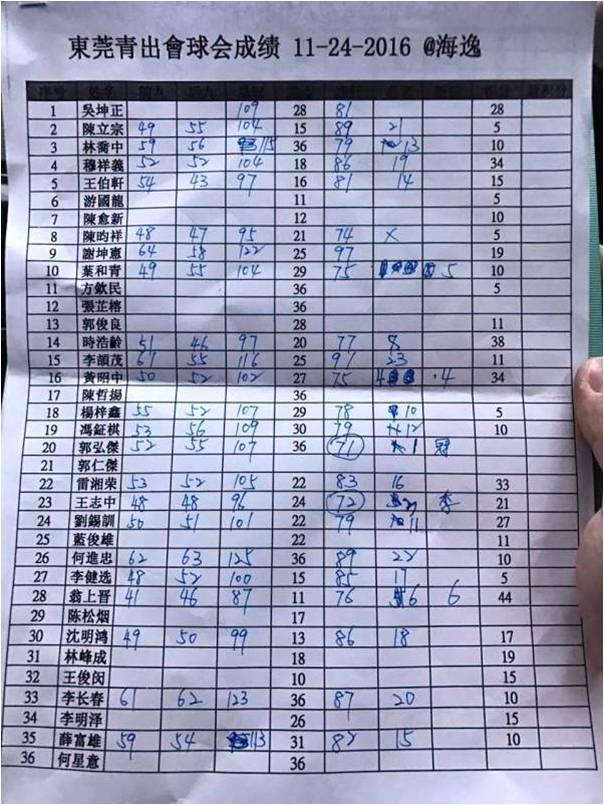 東莞青出會球会成绩 11-24-2016 @海逸
序号 姓名 前九 后九 总杆 差点 净杆 积分 新积分
1 吳坤正 109 28 81 28
2 陳立宗 49 55 104 15 89 21 5
3 林喬中 59 56 115 36 79 13 10
4 穆祥義 52 52 104 18 86 19 34
5 王伯軒 54 43 97 16 81 14 15
6 游國龍 11 5
7 陳愈新 12 10
8 陳昀祥 48 47 95 21 74 x 5
9 謝坤憲 64 58 122 25 97 19
10 葉和青 49 55 104 29 75 5 10
11 方欽民 36 5
12 張芷榕 36
13 郭俊良 28 11
14 時浩齡 51 46 97 20 77 8 38
15 李頡茂 61 55 116 25 91 23 11
16 黃昭中 50 52 102 27 75 4 34
17 陳哲揚 36
18 楊梓鑫 55 52 107 29 78 10 5
19 馮鉦棋 53 56 109 30 79 12 10
20 郭弘傑 52 55 107 36 71 1 冠
21 郭仁傑
22 雷湘荣 53 52 105 22 83 16 33
23 王志中 48 48 96 24 72 2 季 21
24 劉錫訓 50 51 101 22 79 11 27
25 藍俊雄 22 11
26 何進忠 62 63 125 36 89 22 10
27 李健选 48 52 100 15 85 17 5
28 翁上晋 41 46 87 11 76 6 6 44
29 陈松烟 17
30 沈明鸿 49 50 99 13 86 18 17
31 林峰成 18 19
32 王俊闵 10 15
33 李长春 61 62 123 36 87 20 10
34 李明泽 26 15
35 薛富雄 59 54 113 31 82 15 10
36 何星意 36